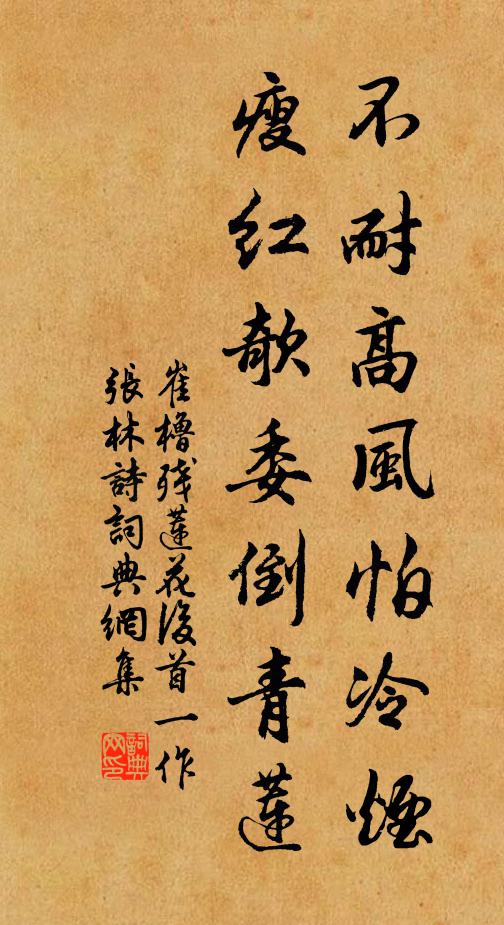 不耐高風怕冷煙
瘦紅欹委倒青蓮
崔櫓殘蓮花後首一作
張林詩詞典網集
詞典網印